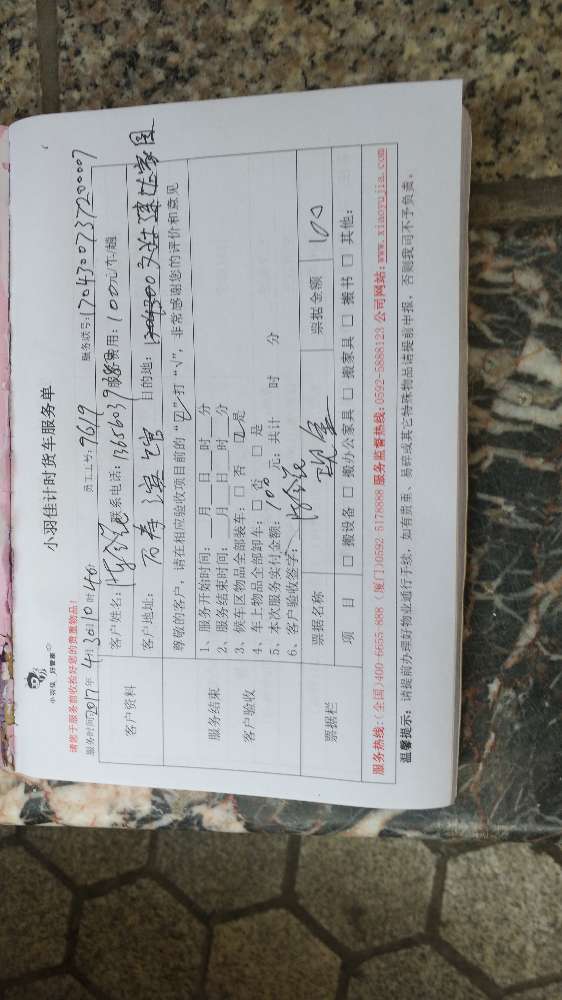 小羽佳计时货车服务单
小羽佳 好管家
请您于服务前收捡好您的贵重物品!
服务时间:2017年4月30日10时40 员工工号:9619 服务联号:170430073720007
客户资料
客户姓名: 联系电话: 服务费用:100元/车/趟
客户地址: 目的地:
尊敬的客户,请在相应验收项目前的“☑”打“√”,非常感谢您的评价和意见
服务结束
客户验收
1、服务开始时间:__月__日__时__分
2、服务结束时间:__月__日__时__分
3、候车区物品全部装车:□ 否 ☑ 是
4、车上物品全部卸车:□ 否 □ 是
5、本次服务实付金额:100 元;共计 时 分
6、客户验收签字:
票据栏
票据名称 现金 票据金额 100
项 目 □ 搬设备 □ 搬办公家具 □ 搬家具 □ 搬书 □ 其他:
服务热线:(全国)400-6655-888 (厦门)0592-5178888 服务监督热线:0592-5888123 公司网站:www.xiaoyujia.com
温馨提示:请提前办理好物业通行手续,如有贵重、易碎或其它特殊物品请提前申报,否则我司不予负责。